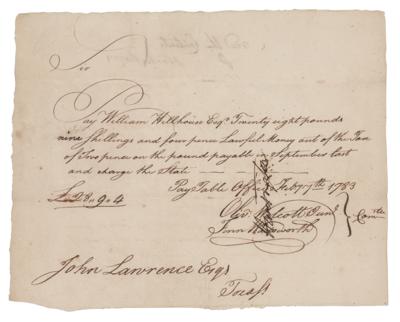 Sir
Pay William Hillhouse Esqr Twenty eight pounds
nine shillings and four pence Lawful Money out of the Tax
of Two pence on the pound payable in September last
and charge the State
Pay Table Office Feby 7th 1783
£28.9.4
Olivr Wolcott Junr
Comtee
John Lawrence Esqr
Treasr